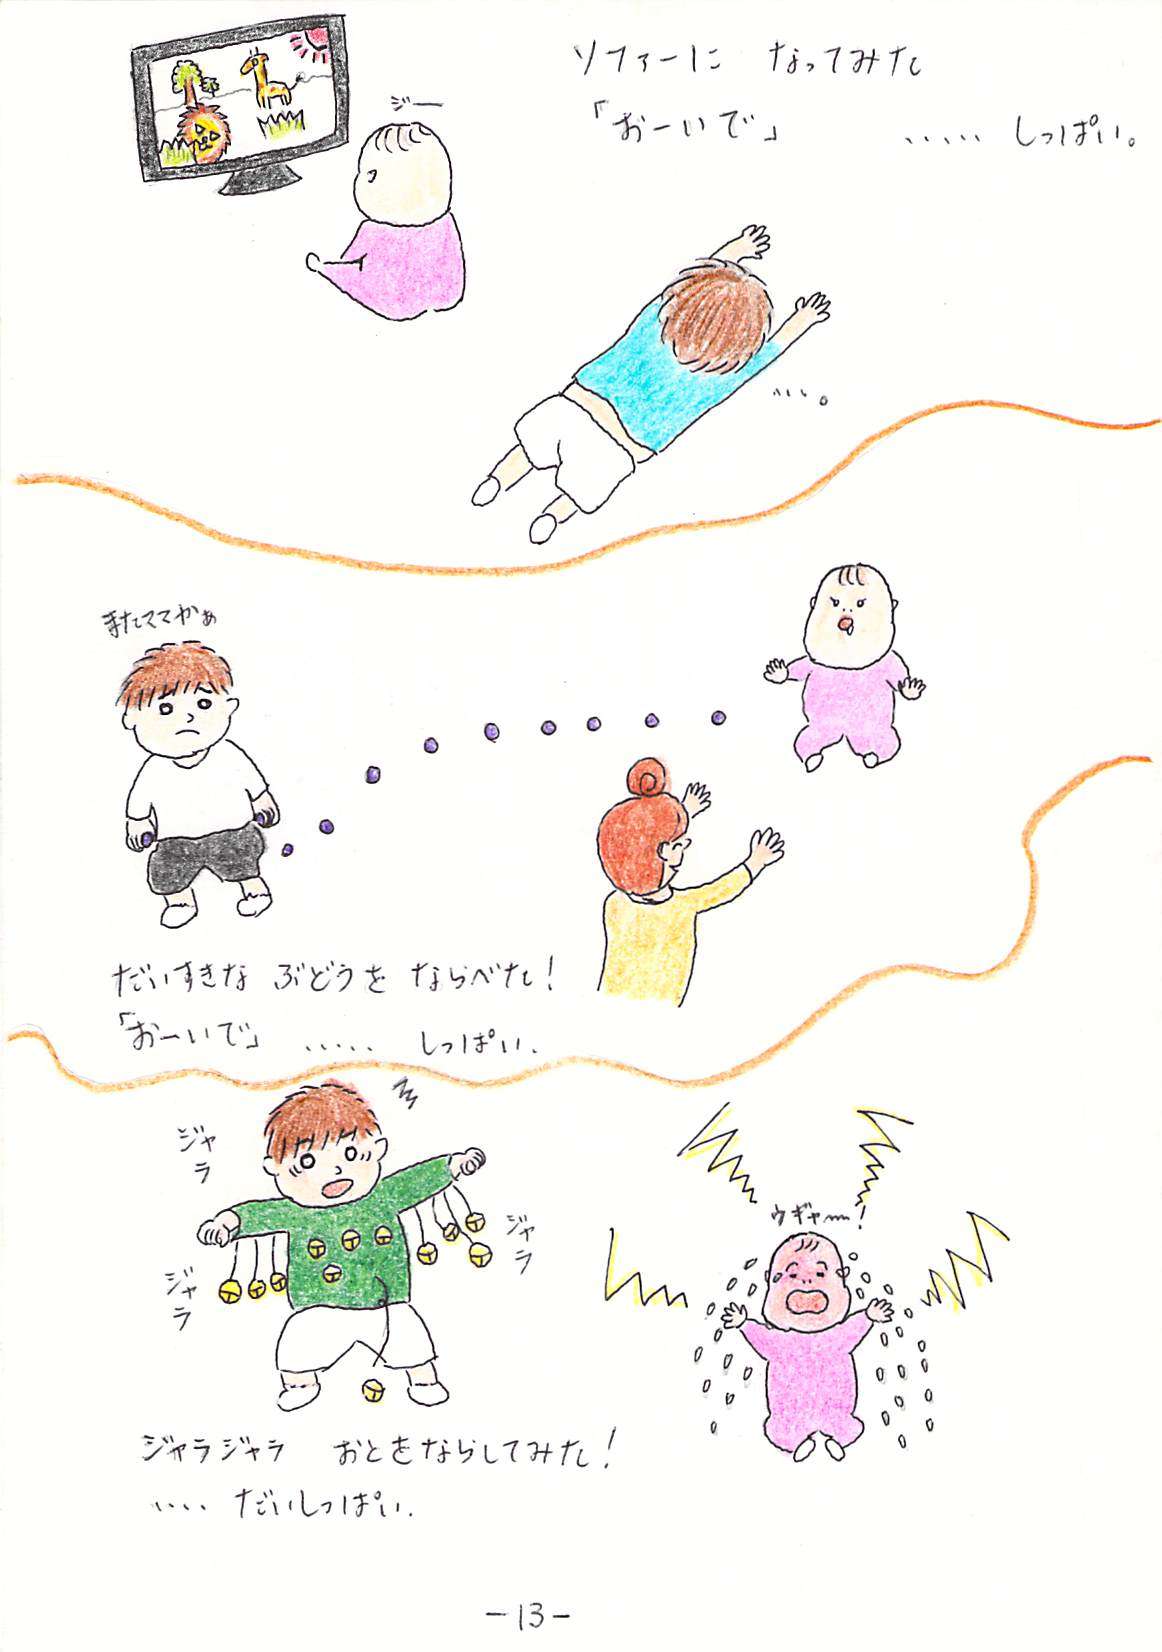 ソファーに なってみた
「おーいで」 ..... しっぱい。
ジー
....。
またママかぁ
だいすきな ぶどうを ならべた!
「おーいで」 ..... しっぱい.
ジャラ
ジャラ
ジャラ
ウギャー!
ジャラジャラ おとをならしてみた!
.... だいしっぱい.
-13-